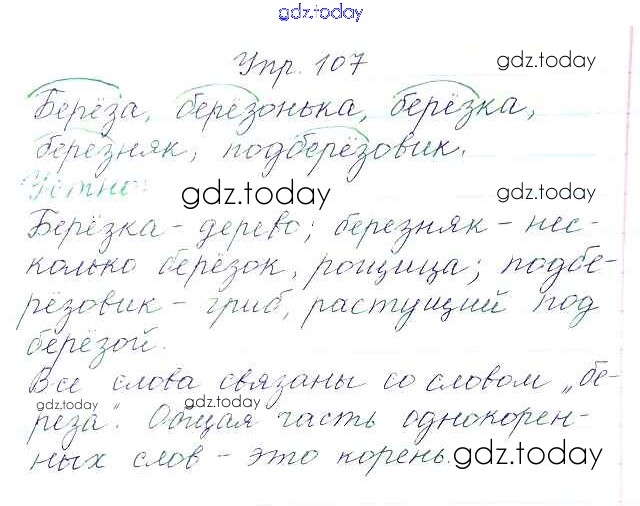 gdz.today
Упр. 107
gdz.today
Берёза, берёзонька, берёзка,
березняк, подберёзовик.
Устно:
gdz.today
gdz.today
Берёзка - дерево; березняк - нес-
колько берёзок, рощица; подбе-
рёзовик - гриб, растущий под
берёзой.
Все слова связаны со словом „бе-
gdz.today
gdz.today
рёза". Общая часть однокорен-
ных слов - это корень.
gdz.today